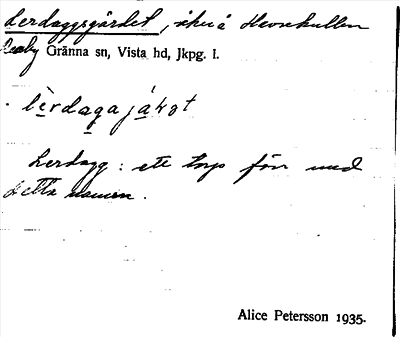 Lerdaggsgärdet, åker å Hevrekullen
Gränna sn, Vista hd, Jkpg. l.
Lerdagg: ett torp förr med
detta namn.
Alice Petersson 1935.